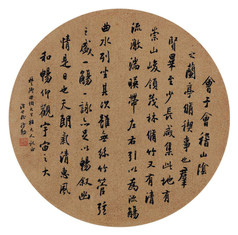 會于會稽山陰
之蘭亭脩禊事也羣
賢畢至少長咸集此地有
崇山峻領茂林脩竹又有清
流激湍暎帶左右引以為流觴
曲水列坐其次雖無絲竹管弦
之盛一觴一詠亦足以暢敘幽
情是日也天朗氣清惠風
和暢仰觀宇宙之大